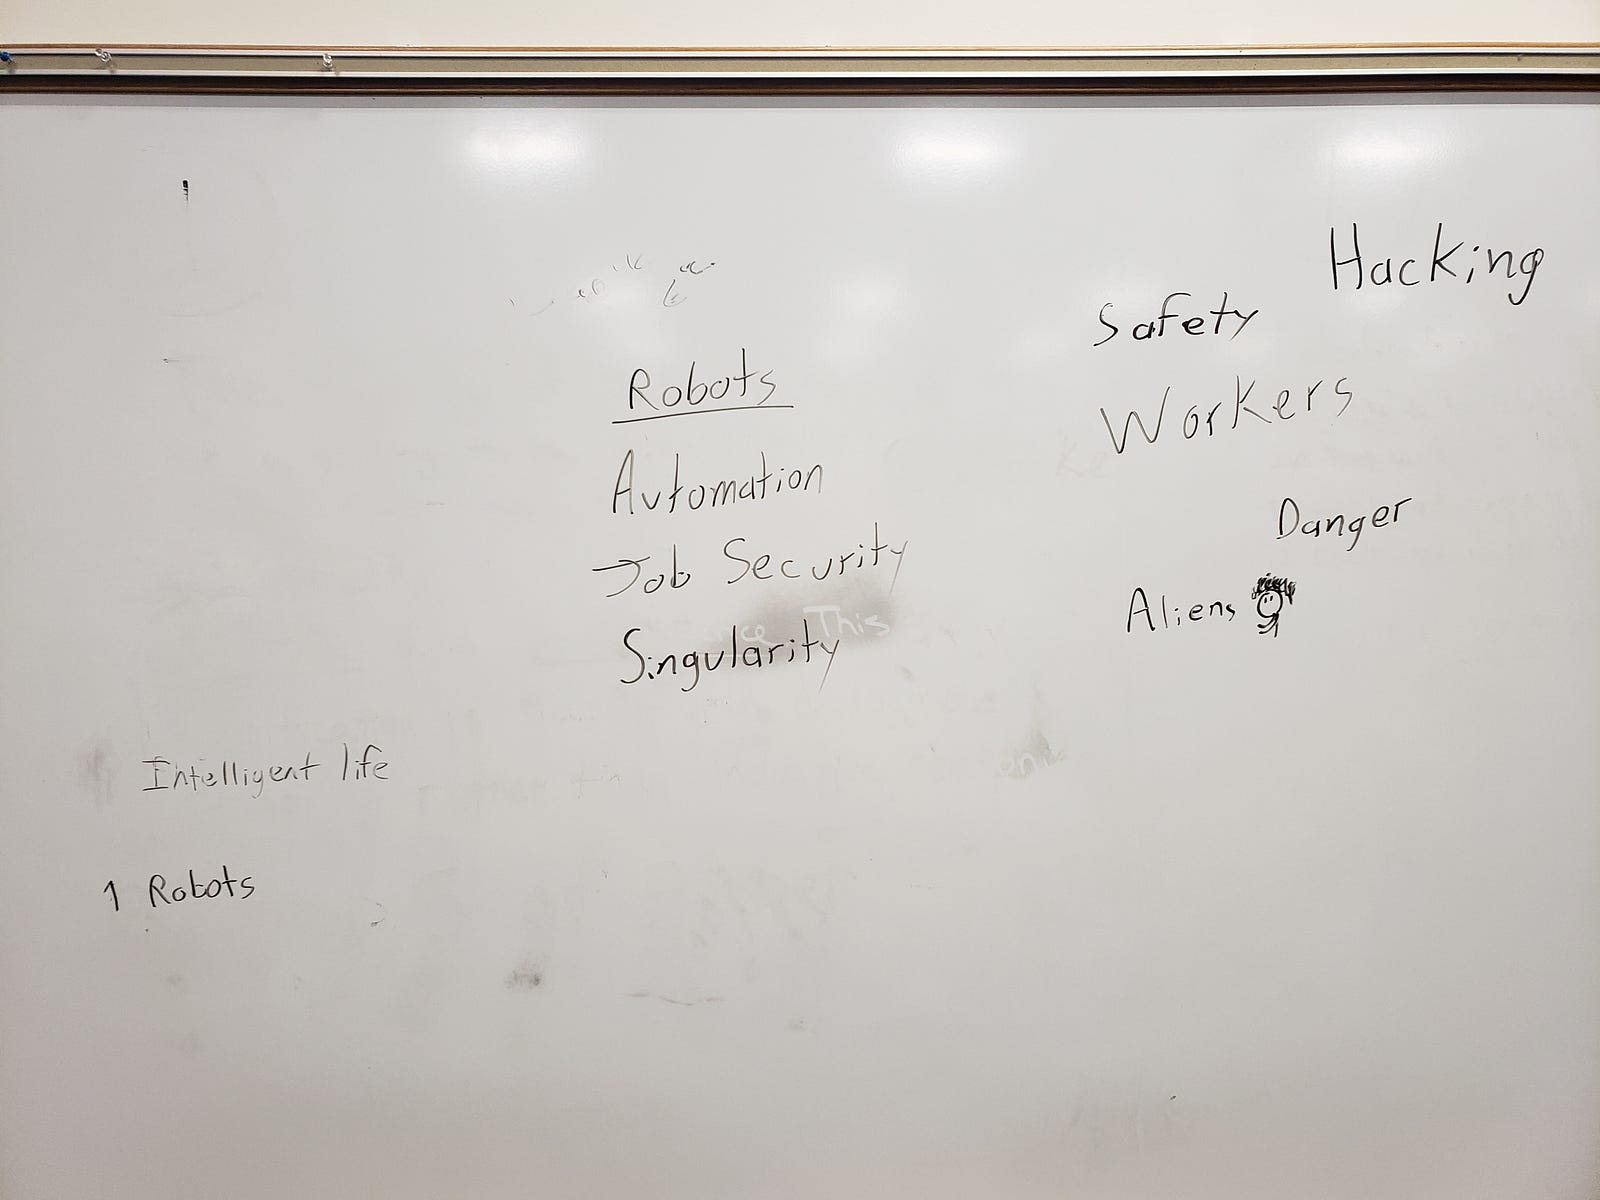 Hacking
Safety
Workers
Danger
Aliens
Robots
Automation
Job Security
This
Singularity
Intelligent life
1 Robots